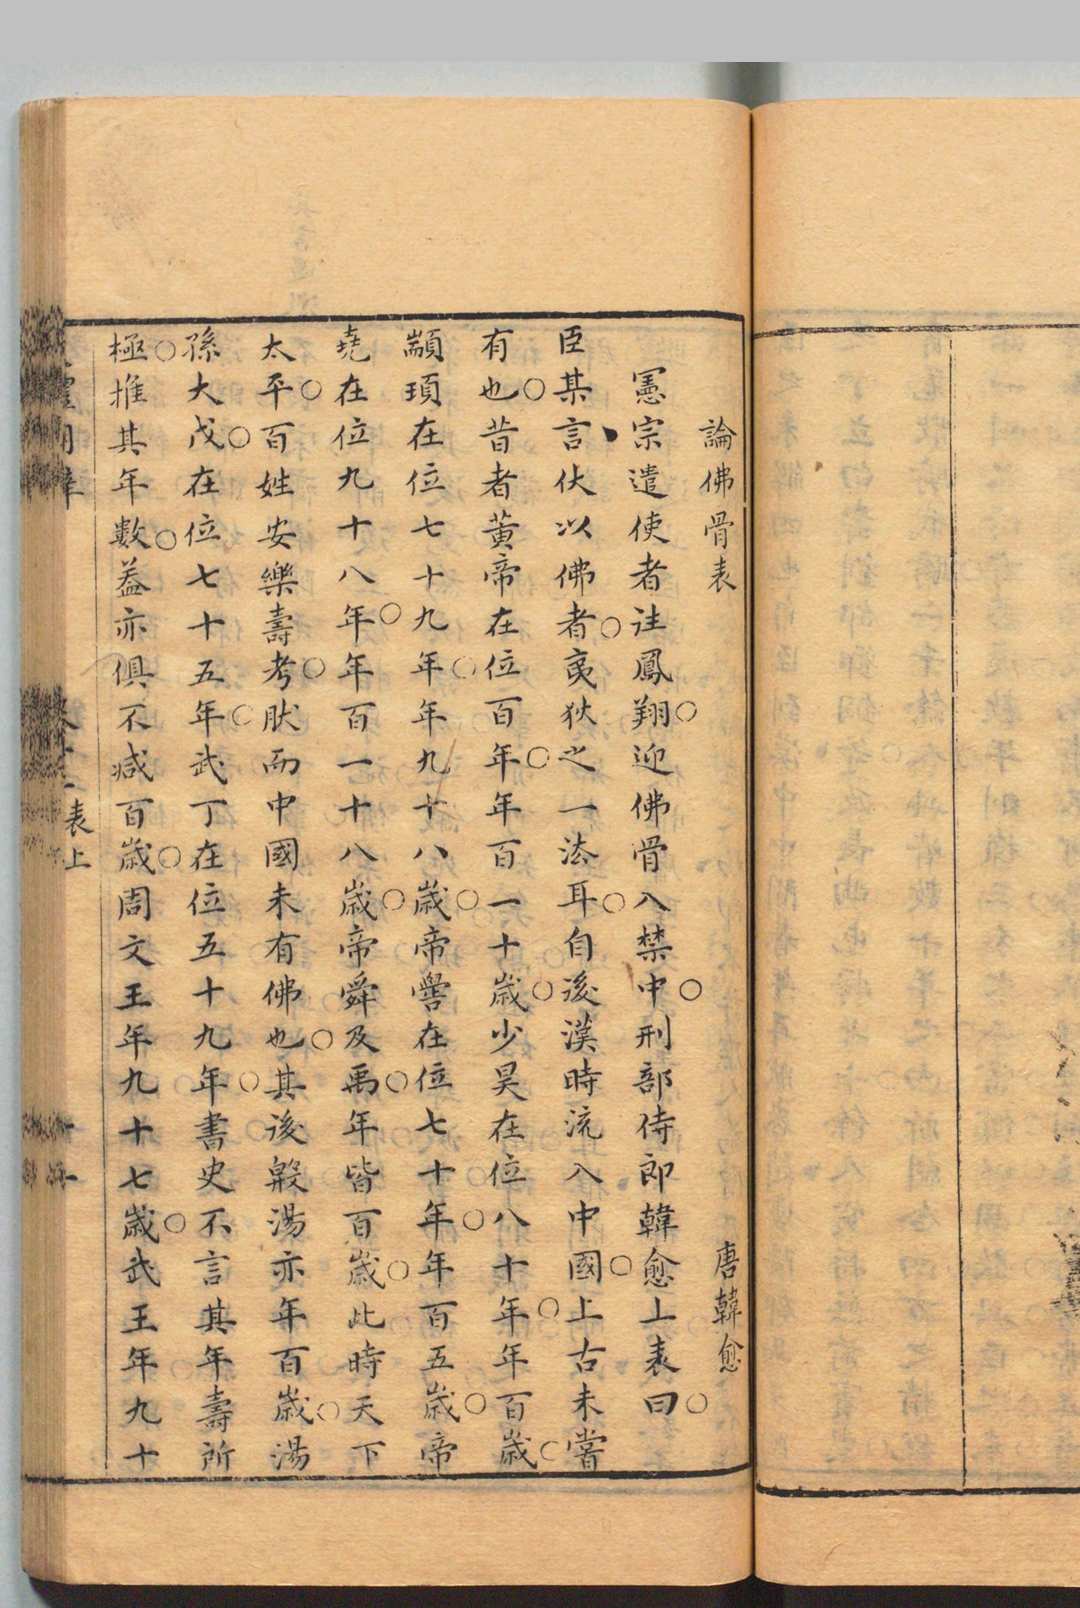 論佛骨表 唐韓愈
憲宗遣使者往鳳翔迎佛骨入禁中刑部侍郎韓愈上表曰
臣某言伏以佛者夷狄之一法耳自後漢時流入中國上古未嘗
有也昔者黃帝在位百年年百一十歲少昊在位八十年年百歲
顓頊在位七十九年年九十八歲帝嚳在位七十年年百五歲帝
堯在位九十八年年百一十八歲帝舜及禹年皆百歲此時天下
太平百姓安樂壽考肰而中國未有佛也其後殷湯亦年百歲湯
孫大戊在位七十五年武丁在位五十九年書史不言其年壽所
極推其年數蓋亦俱不減百歲周文王年九十七歲武王年九十
表上